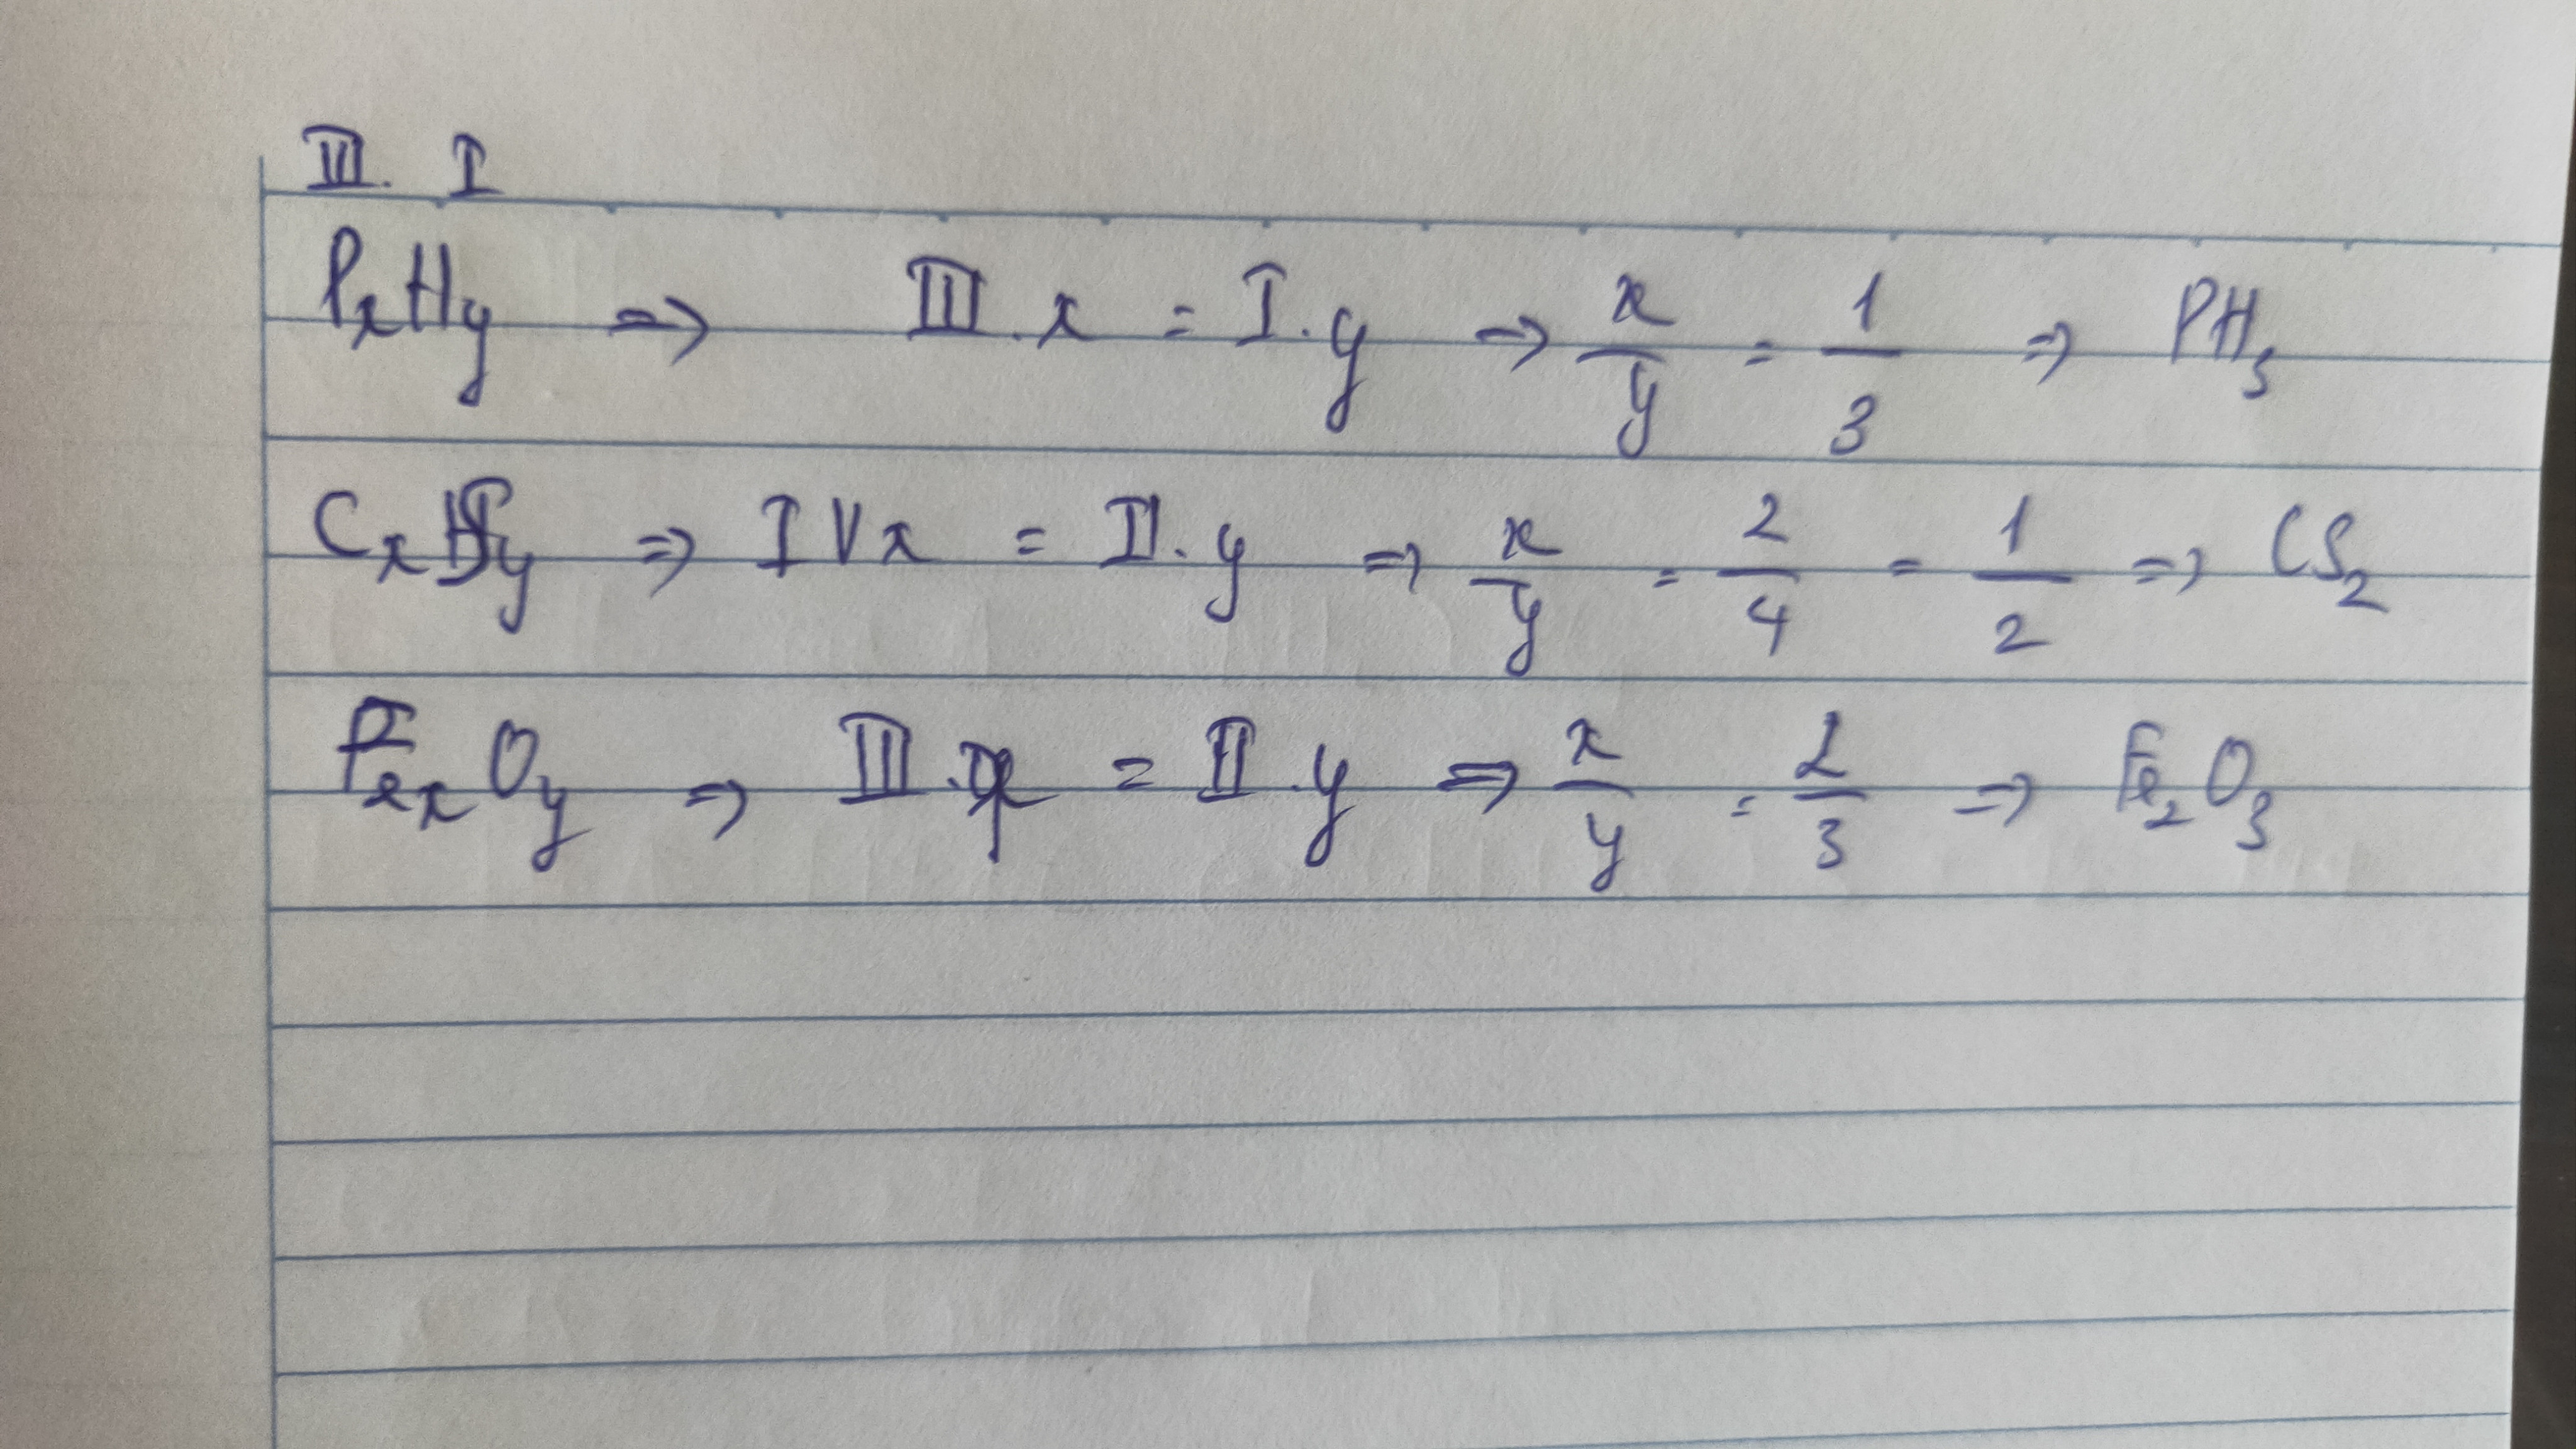 III. I
PxHy => III.x = I.y => x/y = 1/3 => PH3
CxSy => IVx = II.y => x/y = 2/4 = 1/2 => CS2
FexOy => III.x = II.y => x/y = 2/3 => Fe2O3